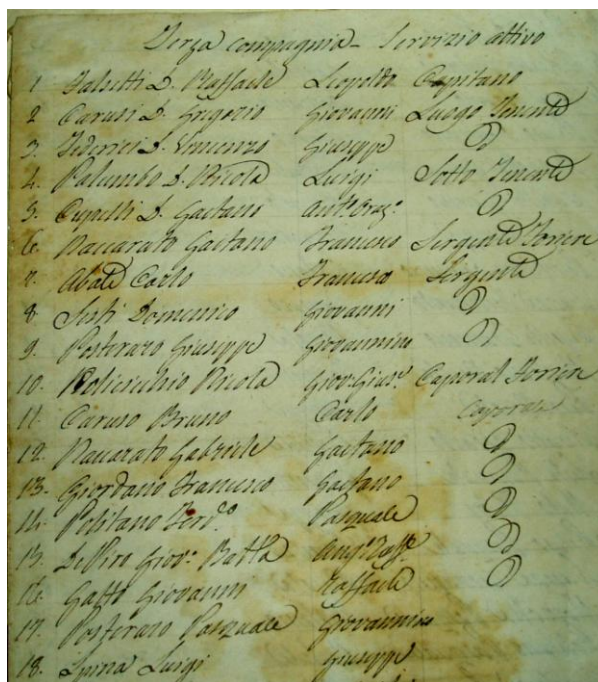 Terza compagnia - Servizio attivo
1 Falsetti D. Raffaele Leopoldo Capitano
2 Carusi D. Grigorio Giovanni Luogo Tenente
3. Federici D. Vincenzo Giuseppe D
4. Palumbo D. Nicola Luigi Sotto Tenente
5. Cupelli D. Gaetano D
6. Naccarato Gaetano Francesco Sergente Forriere
7. Abate Carlo Francesco Sergente
8. Sesti Domenico Giovanni D
9. Posteraro Giuseppe Giovannino D
10. Policicchio Nicola Giov: Gius.e Caporal Forriere
11. Caruso Bruno Carlo Caporale
12. Naccarato Gabriele Gaetano D
13. Giordano Francesco Gaetano D
14. Politano Ferd.do Pasquale D
15. De Piro Giov: Batta Ang.o Raff.e D
16. Gatto Giovanni Raffaele D
17. Posteraro Pasquale Giovannino
18. Spina Luigi Giuseppe